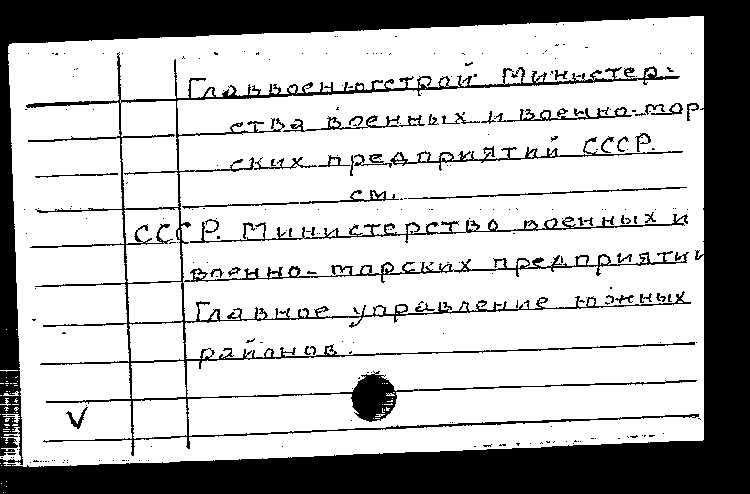 Главвоенюгстрой Министер-
ства военных и военно-мор
ских предприятий СССР.
см.
СССР. Министерство военных и
военно-морских предприятий
Главное управление южных
районов.
V